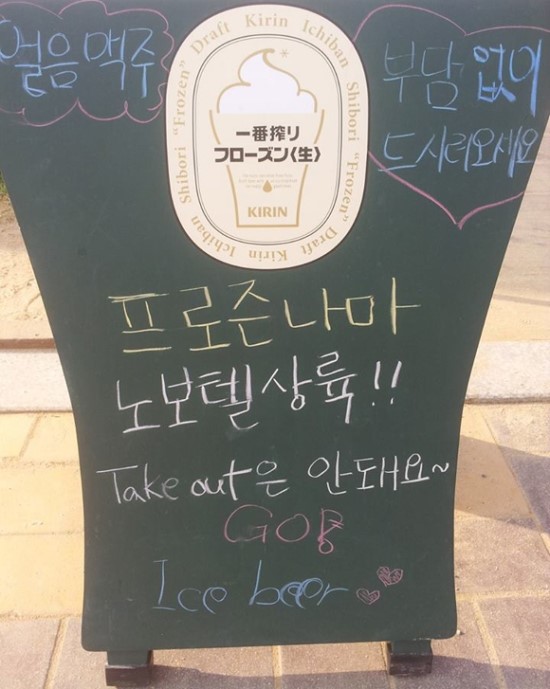 얼음 맥주
Draft Kirin Ichiban Shibori "Frozen" Draft Kirin Ichiban Shibori "Frozen"
一番搾り
フローズン〈生〉
KIRIN
부담 없이
드시러오세요
프로즌나마
노보텔상륙!!
Take out은 안돼요~
GO용
Ice beer